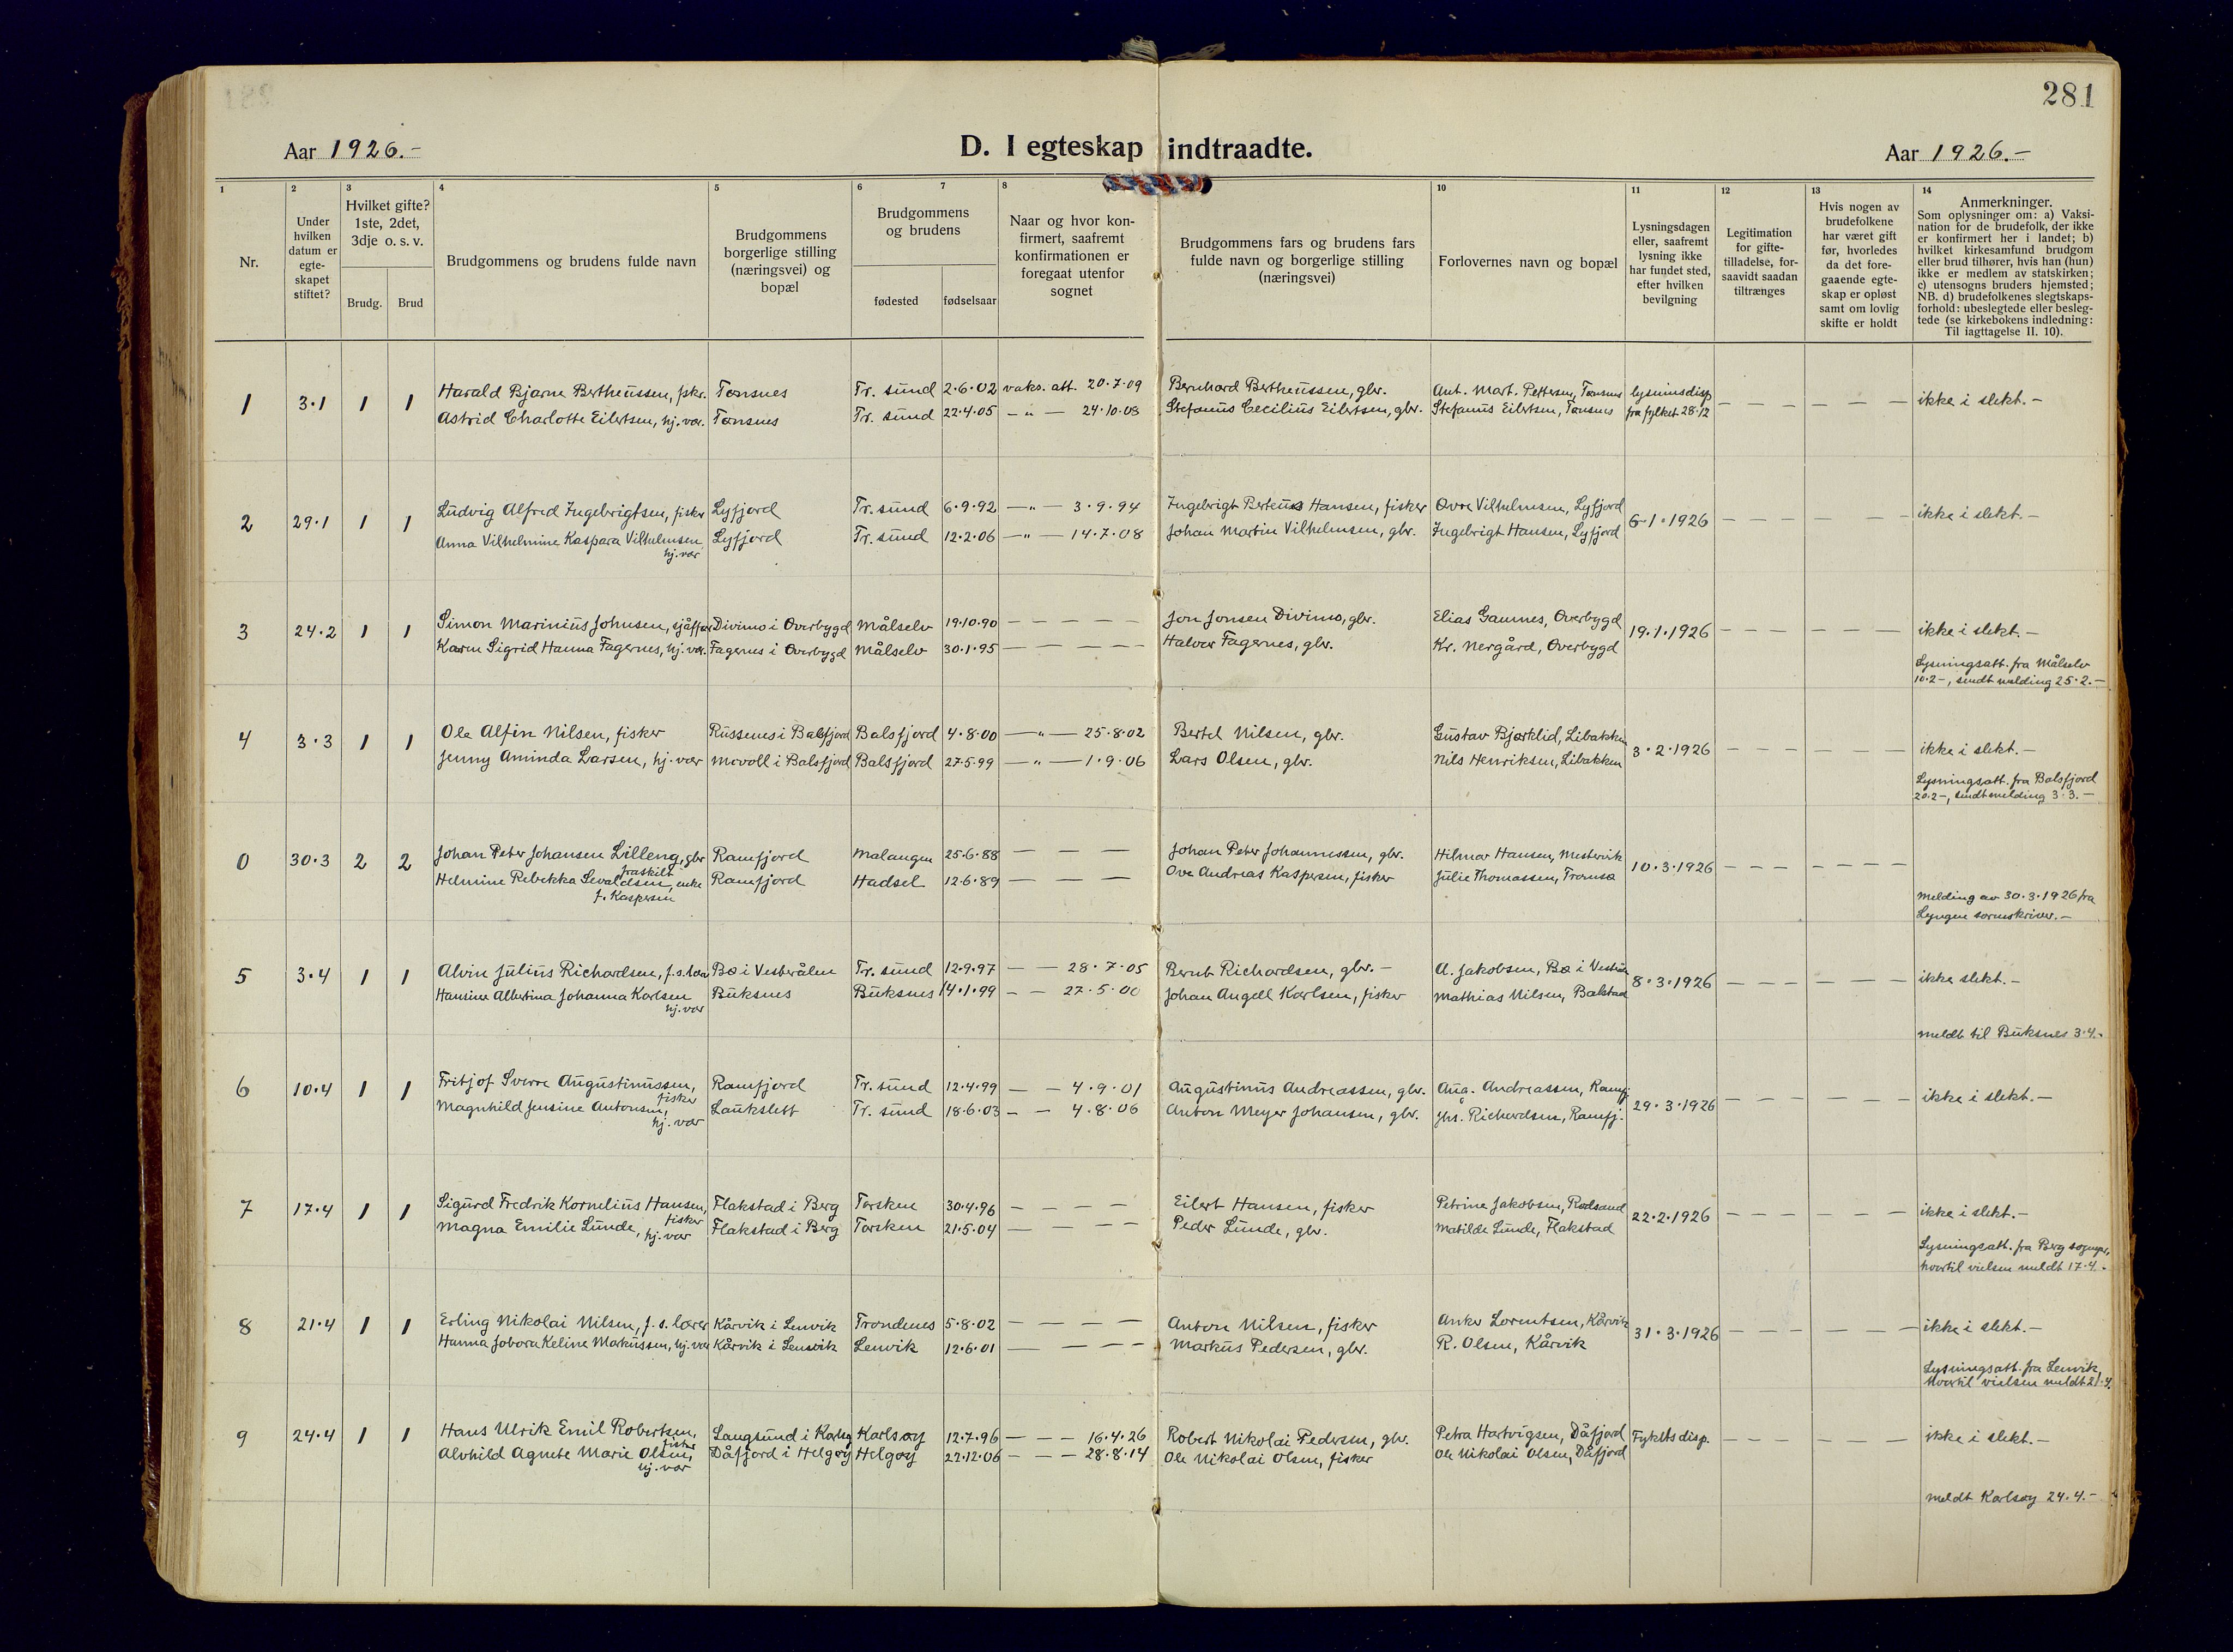 281
Aar 1926.-
D. I egteskap indtraadte.
Aar 1926.-
1 2 3 4 5 6 7 8 10 11 12 13 14
Nr.
Under hvilken datum er egte-skapet stiftet?
Hvilket gifte? 1ste, 2det, 3dje o. s. v.
Brudg. Brud
Brudgommens og brudens fulde navn
Brudgommens borgerlige stilling (næringsvei) og bopæl
Brudgommens og brudens
fødested fødselsaar
Naar og hvor kon-firmert, saafremt konfirmationen er foregaat utenfor sognet
Brudgommens fars og brudens fars fulde navn og borgerlige stilling (næringsvei)
Forlovernes navn og bopæl
Lysningsdagen eller, saafremt lysning ikke har fundet sted, efter hvilken bevilgning
Legitimation for gifte-tilladelse, for-saavidt saadan tiltrænges
Hvis nogen av brudefolkene har været gift før, hvorledes da det fore-gaaende egte-skap er opløst samt om lovlig skifte er holdt
Anmerkninger.
Som oplysninger om: a) Vaksi-nation for de brudefolk, der ikke er konfirmert her i landet; b) hvilket kirkesamfund brudgom eller brud tilhører, hvis han (hun) ikke er medlem av statskirken; c) utensogns bruders hjemsted; NB. d) brudefolkenes slegtskaps-forhold: ubeslegtede eller besleg-tede (se kirkebokens indledning: Til iagttagelse II. 10).
1 3.1 1 1 Harald Bjarne Bertheussen, fskr. Tønsnes Tr. sund 2.6.02 vaks. att. 20.7.09 Bernhard Bertheussen, gbr. Ant. Mart. Pettersen, Tønsnes lysninsdisp ikke i slekt.-
Astrid Charlotte Eilertsen, hj.vær. Tønsnes Tr. sund 22.4.05 -"- 24.10.08 Stefanus Cecilius Eilertsen, gbr. Stefanus Eilertsen, Tønsnes fra fylket 28.12
2 29.1 1 1 Ludvig Alfred Ingebrigtsen, fisker Lyfjord Tr. sund 6.9.92 -"- 3.9.94 Ingebrigt Berteus Hansen, fisker Ovre Vilhelmsen, Lyfjord 6.1.1926 ikke i slekt.-
Anna Vilhelmine Kaspara Vilhelmsen Lyfjord Tr. sund 12.2.06 -"- 14.7.08 Johan Martin Vilhelmsen, gbr. Ingebrigt Hansen, Lyfjord
hj.vær
3 24.2 1 1 Simon Marinius Johnsen, sjåfør Divimo i Øverbygd Målselv 19.10.90 - - - - Jon Jonsen Divimo, gbr. Elias Gamnes, Øverbygd 19.1.1926 ikke i slekt.-
Karen Sigrid Hanna Fagernes, hj.vær. Fagernes i Øverbygd Målselv 30.1.95 - - - - Halvor Fagernes, gbr. Kr. Nergård, Øverbygd
Lysningsatt. fra Målselv
10.2-, sendt melding 25.2.-
4 3.3 1 1 Ole Alfin Nilsen, fisker Russenes i Balsfjord Balsfjord 4.8.00 -"- 25.8.02 Bertel Nilsen, gbr. Gustav Bjørklid, Libakken 3.2.1926 ikke i slekt.-
Jenny Aminda Larsen, hj.vær Movoll i Balsfjord Balsfjord 27.5.99 -"- 1.9.06 Lars Olsen, gbr. Nils Henriksen, Libakken
Lysningsatt. fra Balsfjord
20.2-, sendt melding 3.3.-
0 30.3 2 2 Johan Peter Johansen Lilleng, gbr Ramfjord Malangen 25.6.88 - - - Johan Peter Johannessen, gbr. Hilmar Hansen, Mestervik 10.3.1926
fraskilt
Helmine Rebekka Sevaldsen, enke Ramfjord Hadsel 12.6.89 - - - Ove Andreas Kaspersen, fisker Julie Thomassen, Tromsø
f. Kaspersen
Melding av 30.3.1926 fra
Lyngen sorenskriver.-
5 3.4 1 1 Alvin Julius Richardsen, f.s.lærer Bø i Vesterålen Tr. sund 12.9.97 - - 28.7.05 Bernt Richardsen, gbr.- A. Jakobsen, Bø i Vesterå 8.3.1926 ikke slekt.-
Hansine Albertina Johanna Karlsen Buksnes Buksnes 14.1.99 - - 27.5.00 Johan Angell Karlsen, fisker Mathias Nilsen, Balstad
hj.vær
meldt til Buksnes 3.4.-
6 10.4 1 1 Fritjof Sverre Augustinussen, Ramfjord Tr. sund 12.4.99 - - 4.9.01 Augustinus Andreassen, gbr. Aug. Andreassen, Ramfj. 29.3.1926 ikke i slekt.-
fisker
Magnhild Jensine Antonsen, Laukslett Tr. sund 18.6.03 - - 4.8.06 Anton Meyer Johansen, gbr. Jhs. Richardsen, Ramfj.
hj.vær
7 17.4 1 1 Sigurd Fredrik Kornelius Hansen, Flakstad i Berg Torsken 30.4.96 - - - - Eilert Hansen, fisker Petrine Jakobsen, Rødsand 22.2.1926 ikke i slekt.-
fisker
Magna Emilie Lunde, hj.vær Flakstad i Berg Torsken 21.5.04 - - - - Peder Lunde, gbr. Matilde Lunde, Flakstad
Lysningsatt. fra Berg sognepr.,
hvortil vielsen meldt 17.4.-
8 21.4 1 1 Erling Nikolai Nilsen, f.s.lærer Kårvik i Lenvik Trondenes 5.8.02 - - - - Anton Nilsen, fisker Anker Lorentsen, Kårvik 31.3.1926 ikke i slekt.-
Hanna Jobora Keline Markussen, hj.vær Kårvik i Lenvik Lenvik 12.6.01 - - - - Markus Pedersen, gbr. R. Olsen, Kårvik
Lysningsatt. fra Lenvik,
hvortil vielsen meldt 21.4.
9 24.4 1 1 Hans Ulrik Emil Robertsen, Langsund i Karlsøy Karlsøy 12.7.96 - - - 16.4.26 Robert Nikolai Pedersen, gbr. Petra Hartvigsen, Dåfjord Fylkets disp. ikke i slekt.-
fisker
Alvhild Agnete Marie Olsen, Dåfjord i Helgøy Helgøy 22.12.06 - - - 28.8.14 Ole Nikolai Olsen, fisker Ole Nikolai Olsen, Dåfjord
hj.vær
meldt Karlsøy 24.4.-